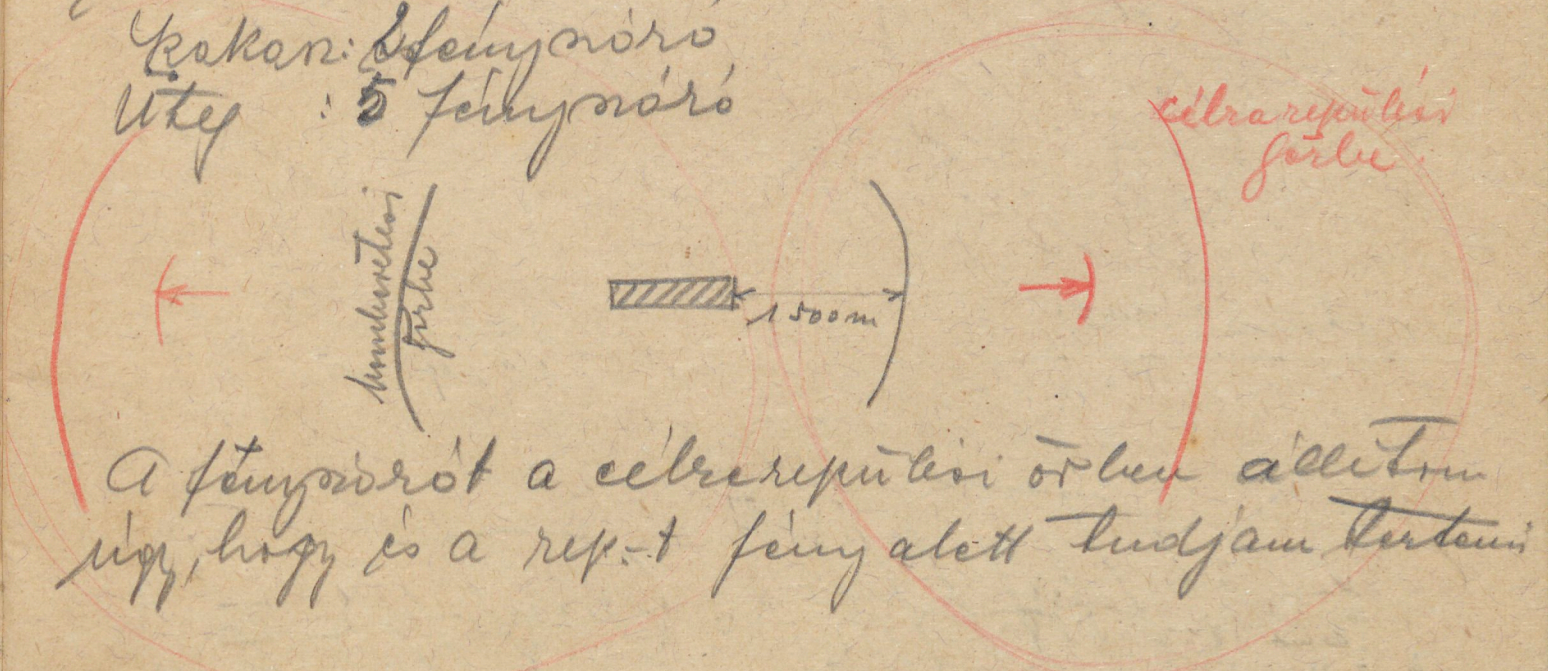 Szakasz: 2 fényszóró
Üteg : 5 fényszóró
célrarepülési
görbe
bombavetési
görbe
1500 m
A fényszórót a célrarepülési ívben állítom
úgy, hogy és a rep.-t fény alatt tudjam tartani